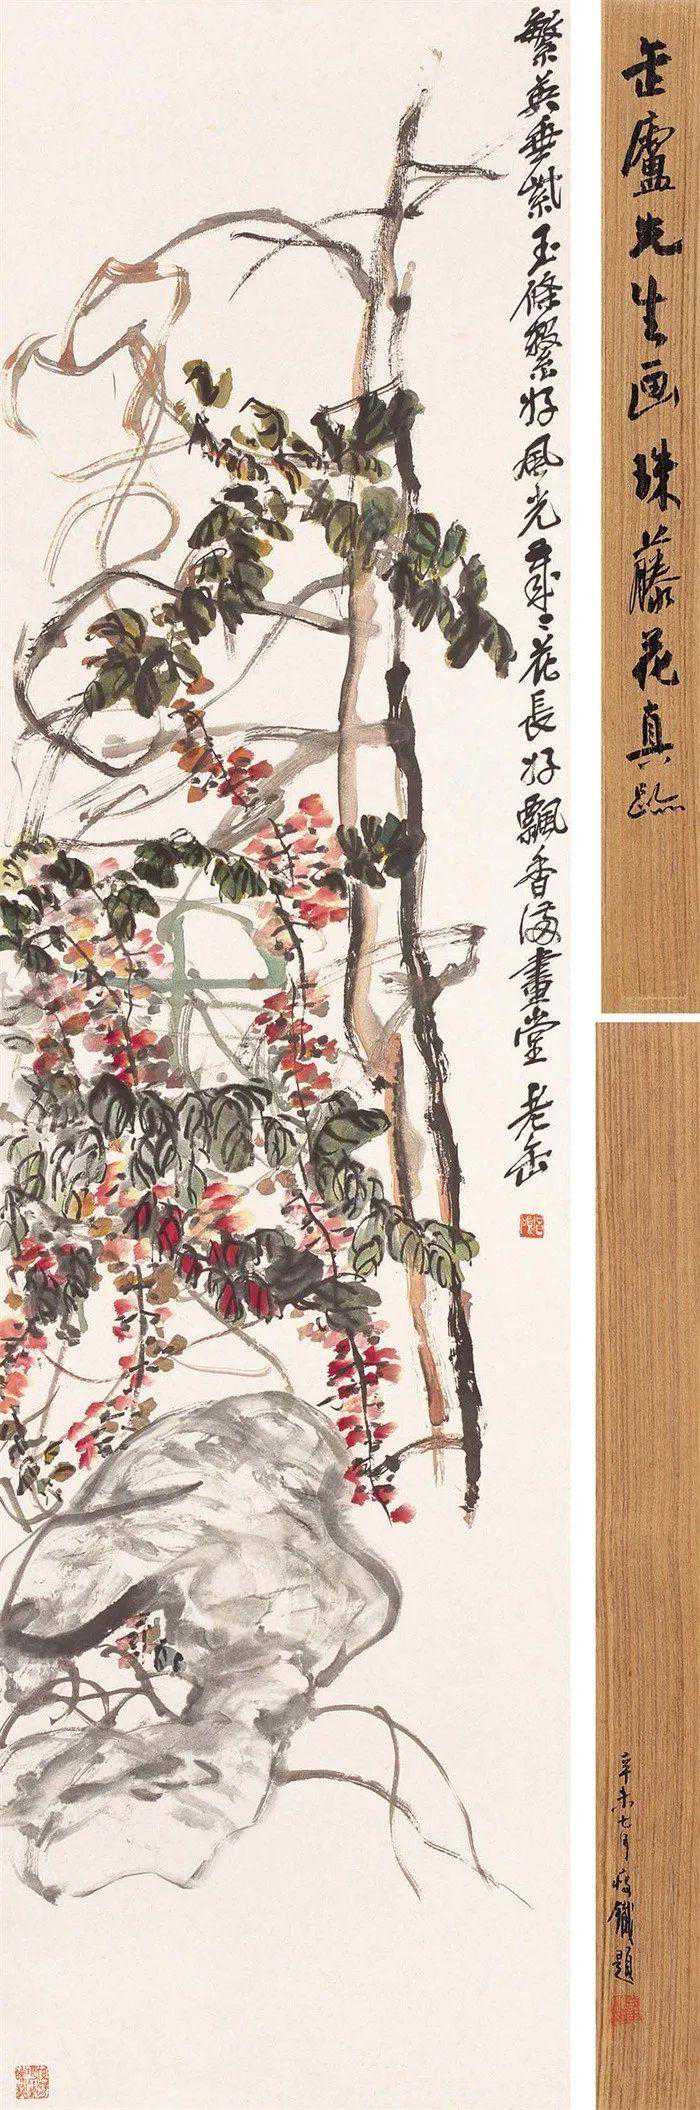 繁英垂紫玉條繫好風光歲〻花長好飄香滿畫堂 老缶
缶廬先生画珠藤花真跡
辛未七月 鐵題